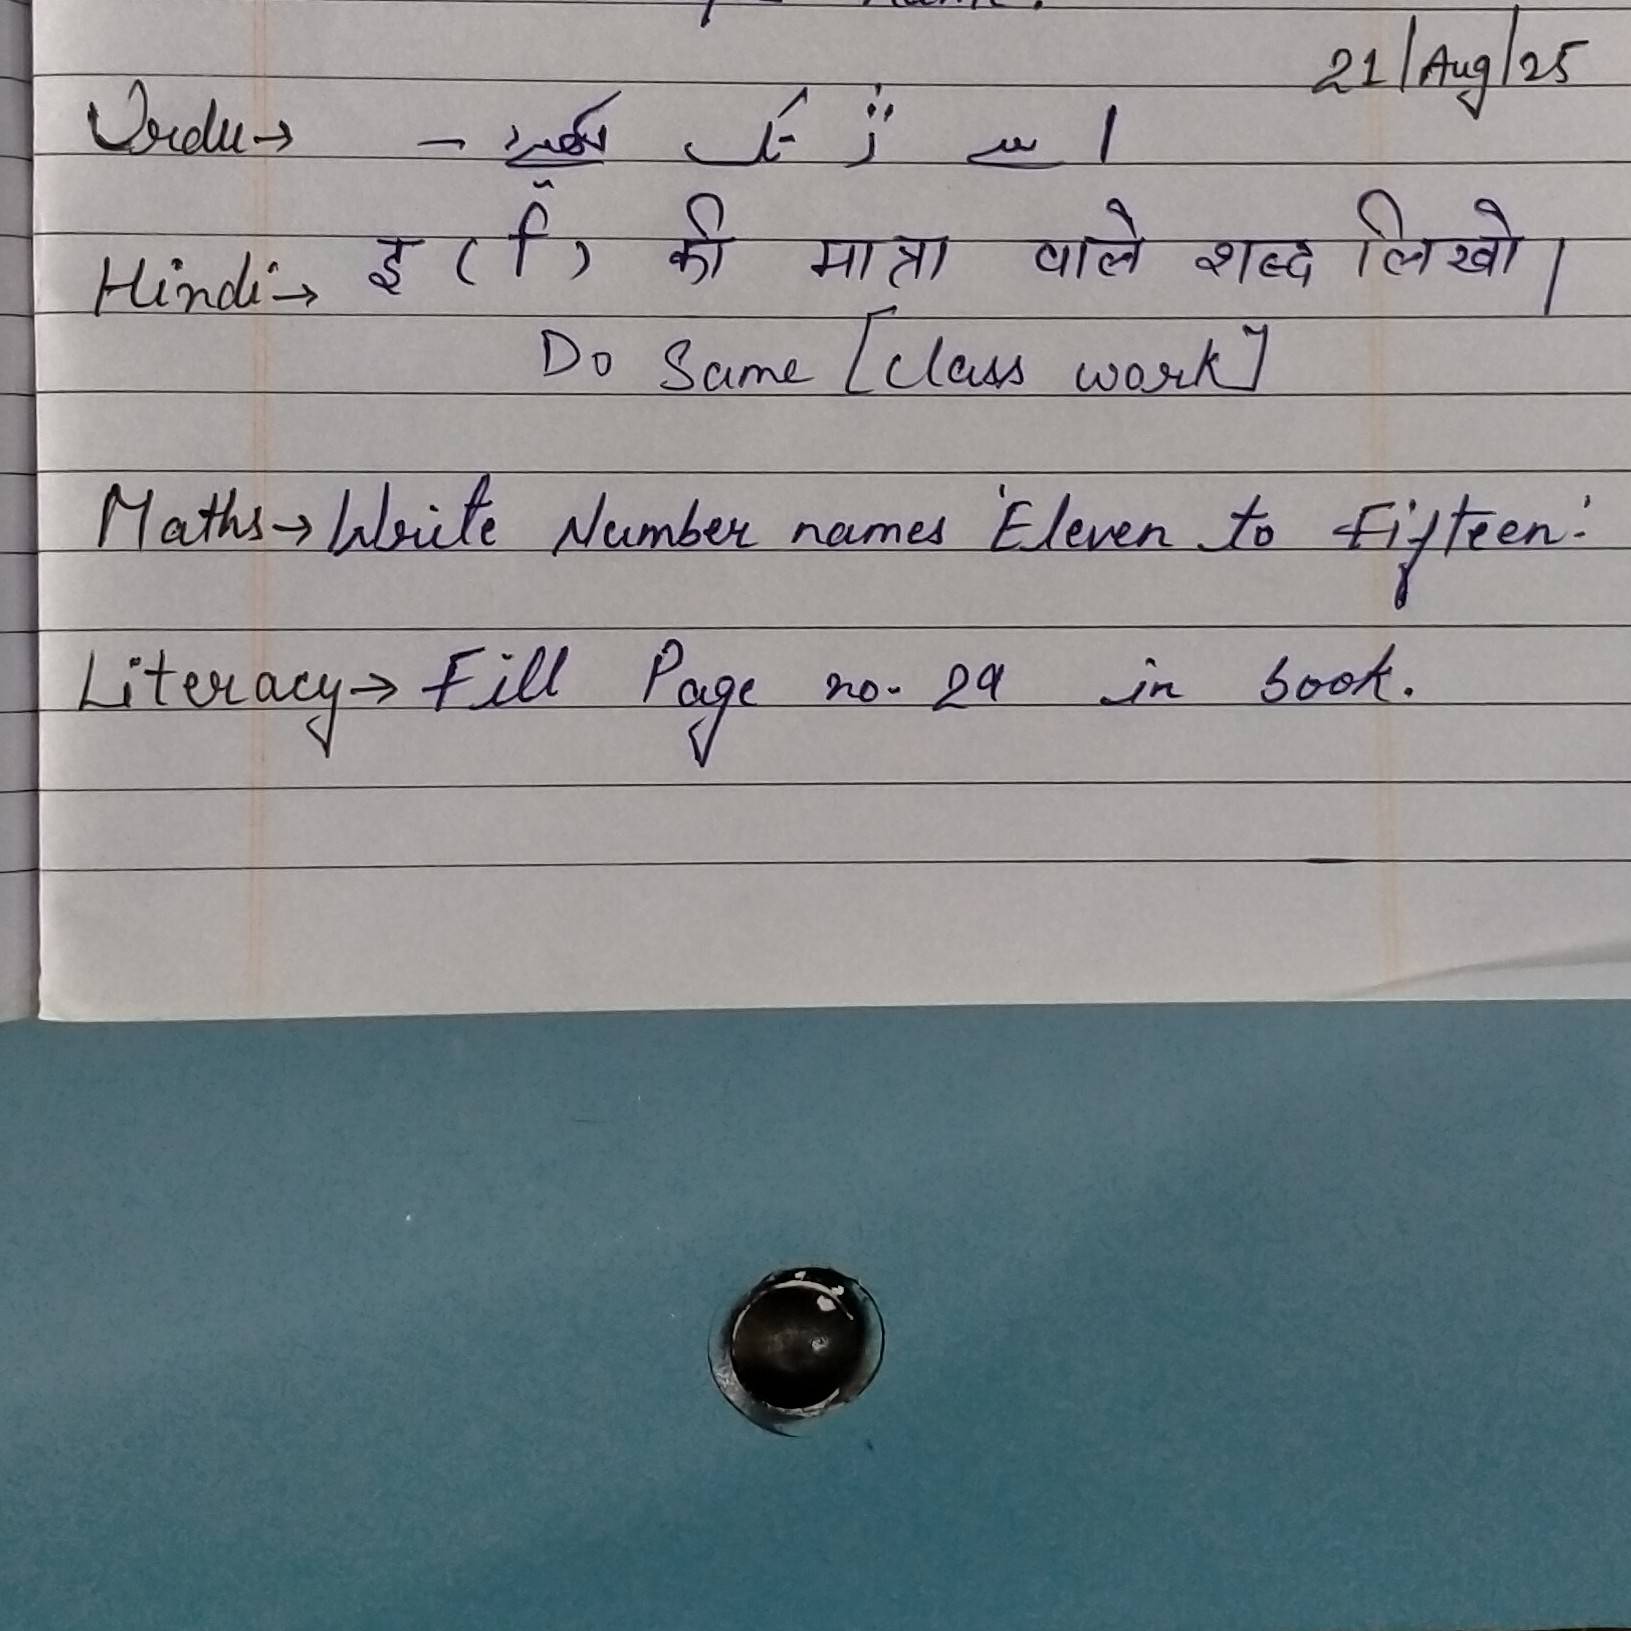 21/Aug/25
Urdu→ ا سے ژ تک لکھیے ۔
Hindi→ इ (ि) की मात्रा वाले शब्द लिखो |
Do Same [Class work]
Maths→ Write Number names 'Eleven to Fifteen'
Literacy→ Fill Page no. 29 in book.